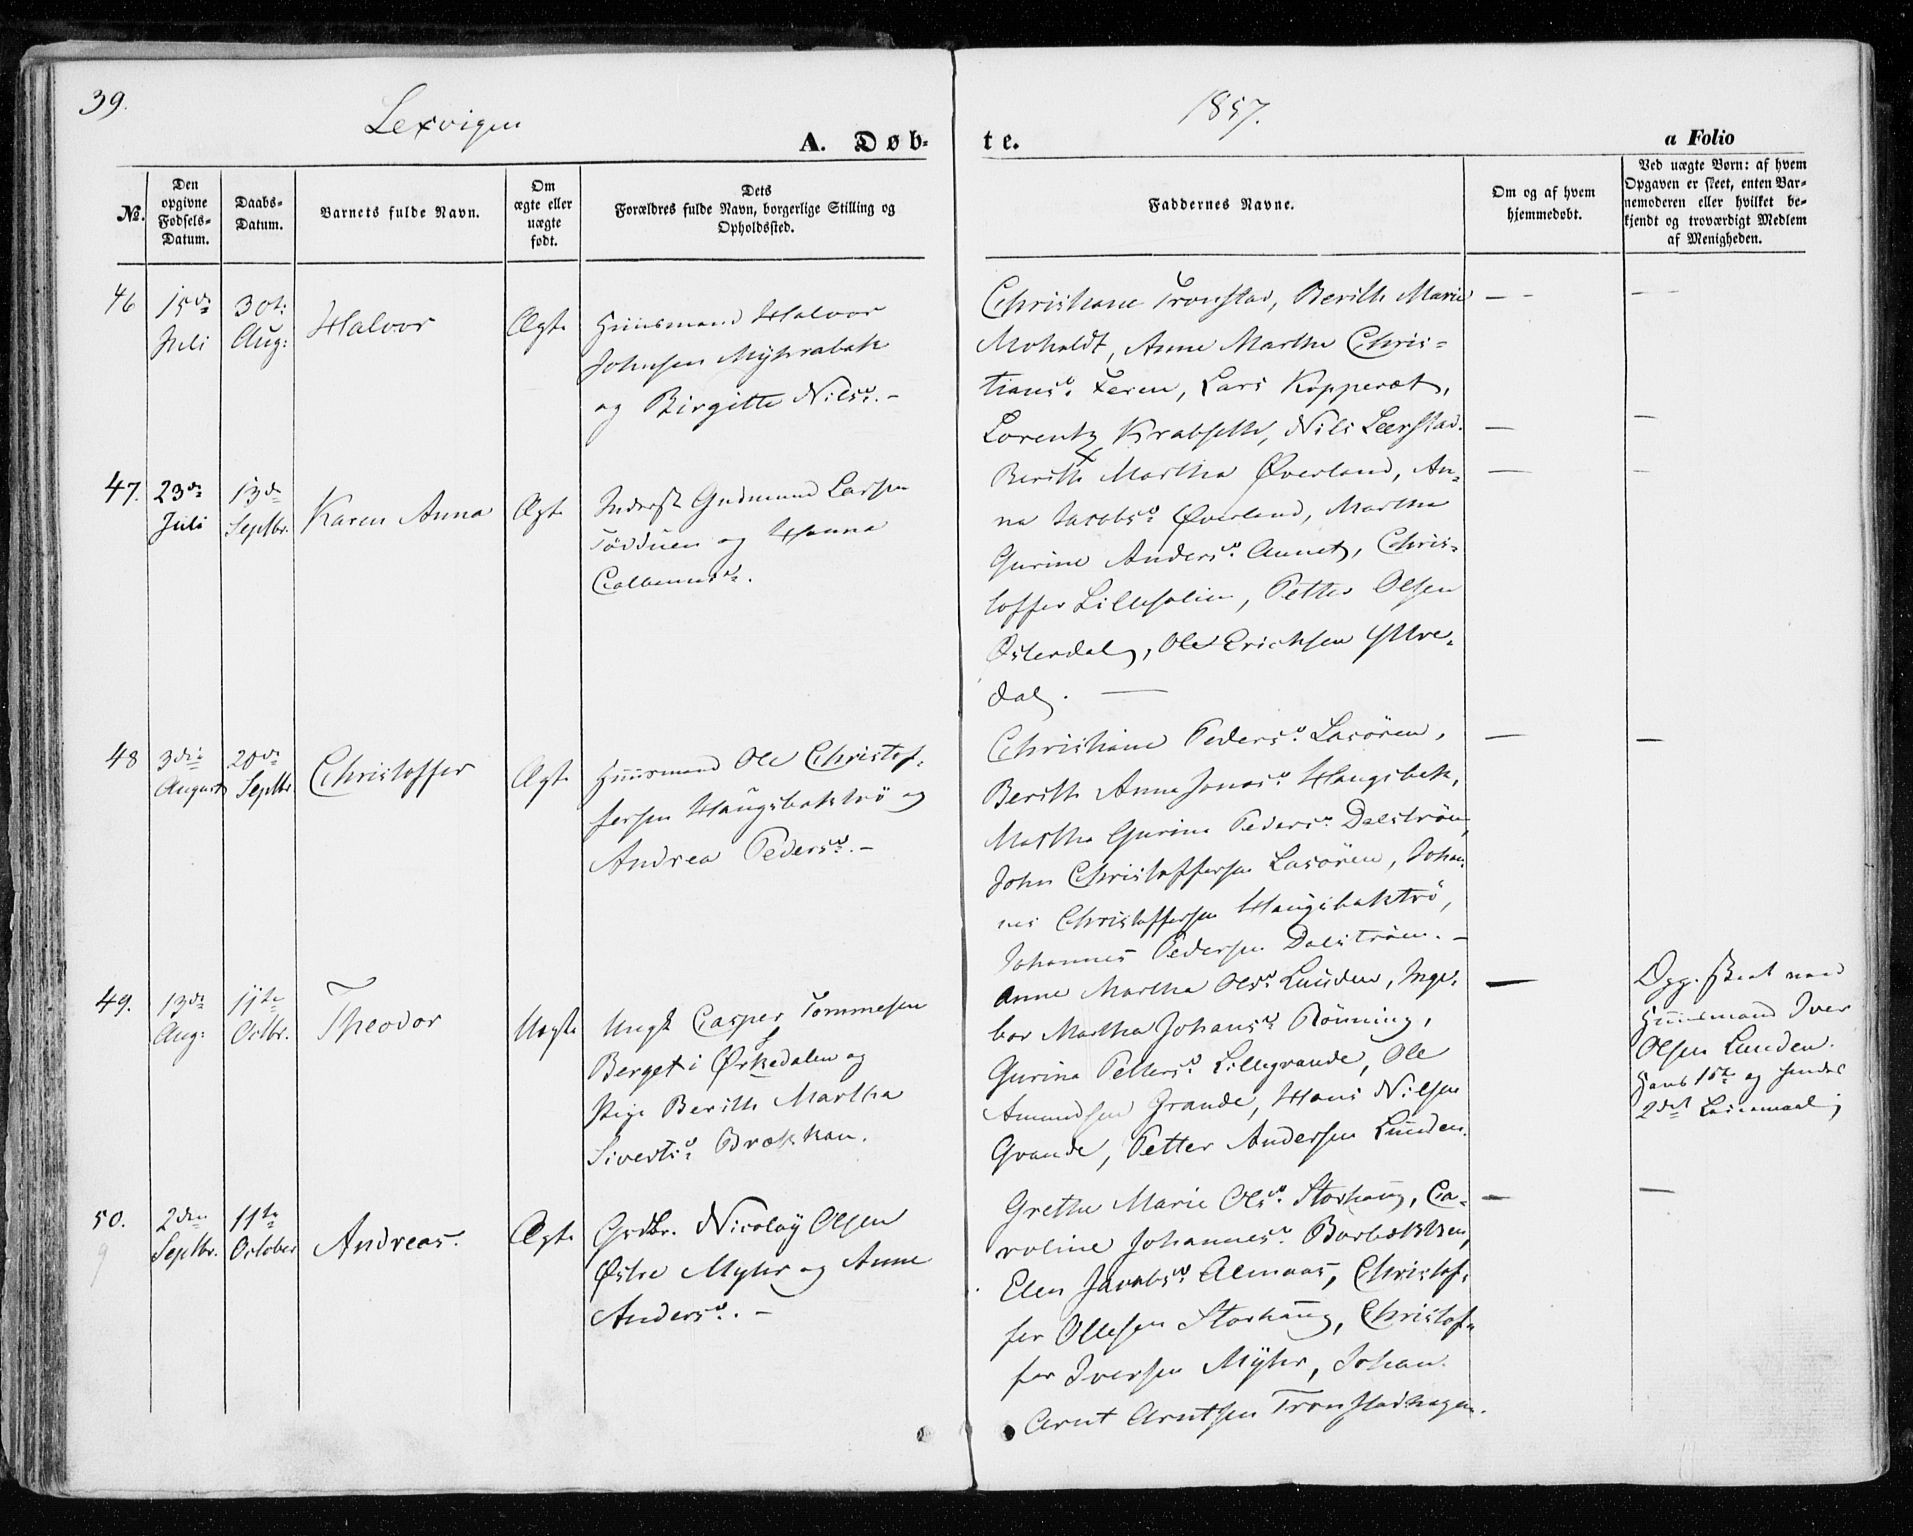 39.
Lexvigen
1857.
A. Døb-
te.
a Folio
No.
Den
opgivne
Fødsels-
Datum.
Daabs-
Datum.
Barnets fulde Navn.
Om
ægte eller
uægte
født.
Dets
Forældres fulde Navn, borgerlige Stilling og
Opholdssted.
Faddernes Navne.
Om og af hvem
hjemmedøbt.
Ved uægte Børn: af hvem
Opgaven er skeet, enten Bar-
nemoderen eller hvilket be-
kjendt og troværdigt Medlem
af Menigheden.
46
15de
Juli
30te
Aug:
Halvor
Ægte
Huusmand Halvor
Johnsen Myhrabak
og Birgitte Nilsd. -
Christiane Tronstad, Berith Marie
Moholdt, Anne Martha Chris-
tiansd. Feren, Lars Kopperat,
Lorentz Krabseth, Nils Leerstad.
47.
23de
Juli
13de
Septbr.
Karen Anna
Ægte
Inderst Gudmund Larsen
og Hanna
Berith Martha Øverland, An-
na Jacobsd. Øverland, Martha
Gurine Andersd. Aunet, Chris-
toffer Lillesolien, Petter Olsen
Østerdal, Ole Erichsen Yttre-
dal. —
48
3die
August
20de
Septbr.
Christoffer
Ægte
Huusmand Ole Christof-
fersen Haugsbaktrø og
Andrea Pedersd. -
Christiane Pedersd. Lasøren,
Berith Anna Jonasd. Haugsbak,
Martha Gurine Pedersd. Dalstrøen,
John Christoffersen Lasøren, Johan-
nes Christoffersen Haugsbaktrø,
Johannes Pedersen Dalstrøen. -
49.
13de
Aug:
11te
Octbr.
Theodor
Uægte
Ungk. Casper Tommesen
Berget i Ørkedalen og
Pige Berith Martha
Sivertsd. Brækkan.
Anne Martha Olsd. Lunden, Inge-
bor Martha Johansd. Rønning,
Gurina Pettersd. Lillegrande, Ole
Amundsen Grande, Hans Nilsen
Grande, Petter Andersen Lunden.
Opg. skeet ved
Huusmand Iver
Olsen Lunden.
Hans 1ste og hendes
2det Leiermaal;
50.
9
2den
Septbr.
11te
October
Andreas.
Ægte
Grdbr. Nicolay Olsen
Østre Myhr og Anne
Andersd. -
Grethe Marie Olsd. Storhaug, Ca-
roline Johannesd.
Elen Jacobsd. Almaas, Christof-
fer Ollesen Storhaug, Christof-
fer Iversen Myhr, Johan
Arnt Arntsen Tronstadhagen.